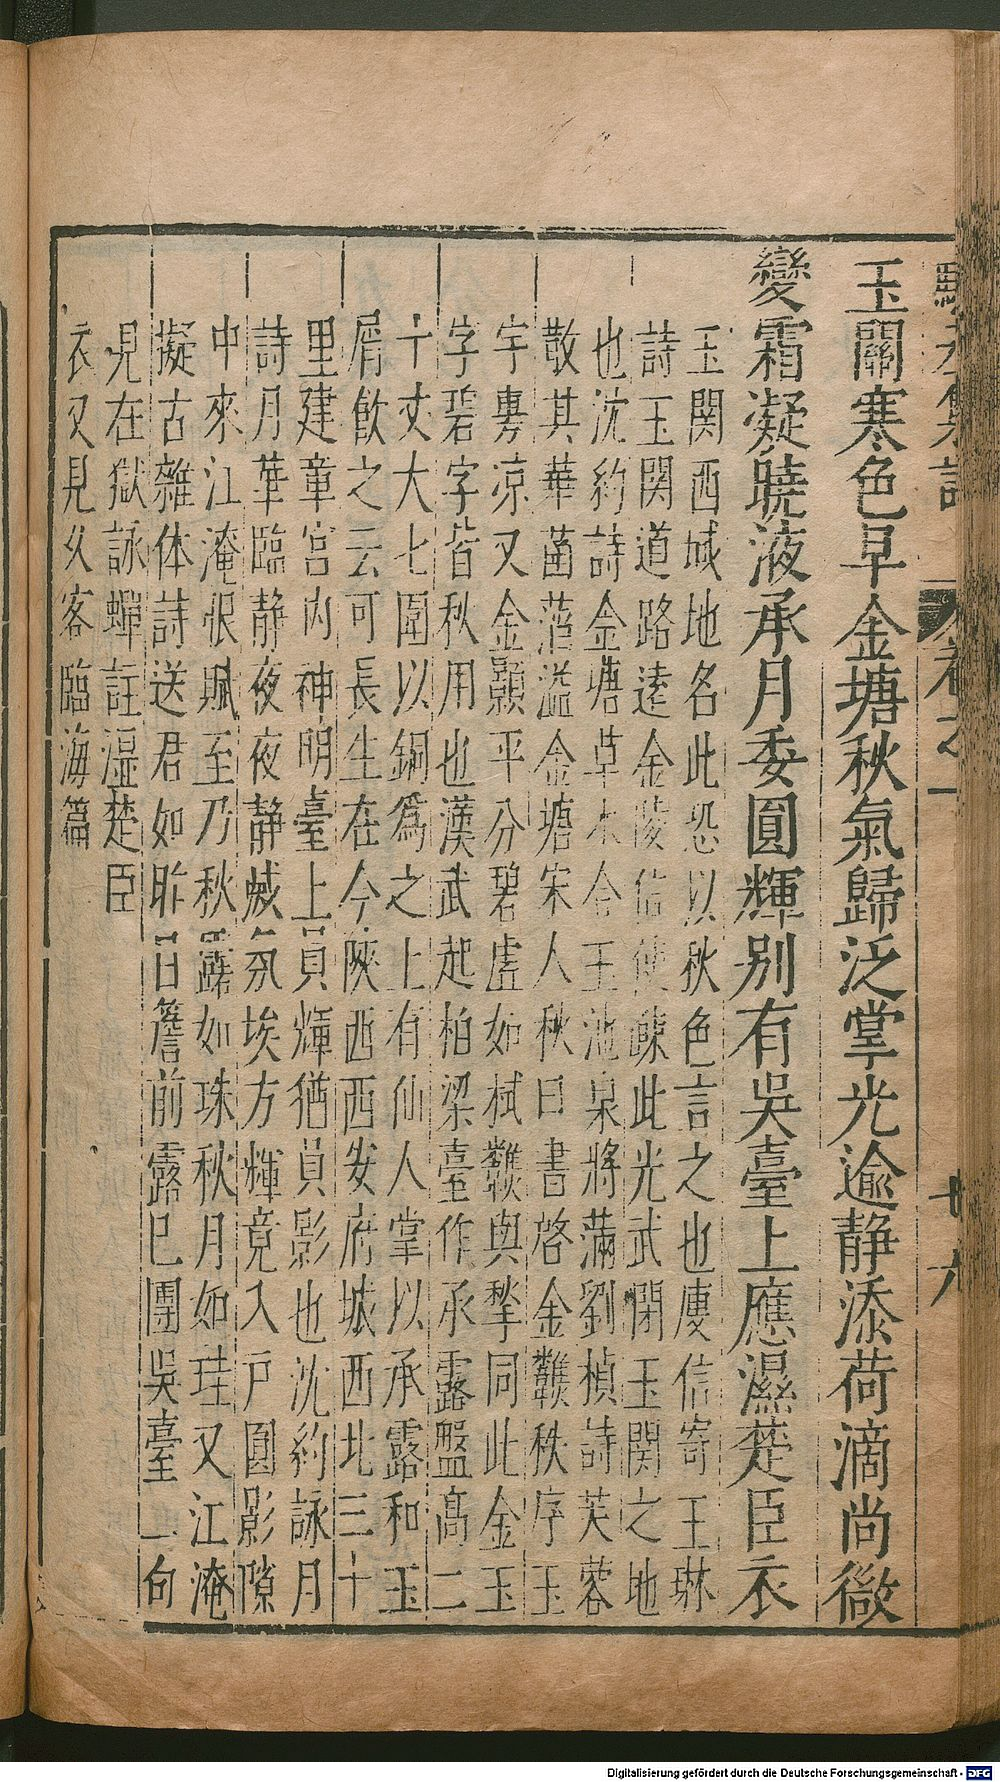 玉關寒色早金塘秋氣歸泛掌光逾静添荷滴尚微
變霜凝曉液承月委圓輝别有吳臺上應濕楚臣衣
玉関西域地名此恐以秋色言之也庾信寄王琳
詩玉関道路遠金陵信使疎此光武閉玉関之地
也沈約詩金塘草木合王池泉將滿劉楨詩芙蓉
散其華菡萏溢金塘宋人秋日書啓金飈秩序玉
宇凉又金顥平分碧虚如拭飈與揫同此金玉
字碧字皆秋用也漢武起柏梁臺作承露盤高二
十丈大七圍以銅爲之上有仙人掌以承露和玉
屑飲之云可長生在今陝西西安府城西北三十
里建章宫内神明臺上員輝猶員影也沈約詠月
詩月華臨静夜夜静滅氛埃方輝竟入戸圓影隙
中來江淹恨賦至乃秋露如珠秋月如珪又江淹
擬古雜体詩送君如昨日簷前露已團吳臺一句
見在獄詠蟬註湿楚臣
衣又見久客臨海篇
卷之一
十六
Digitalisierung gefördert durch die Deutsche Forschungsgemeinschaft - DFG